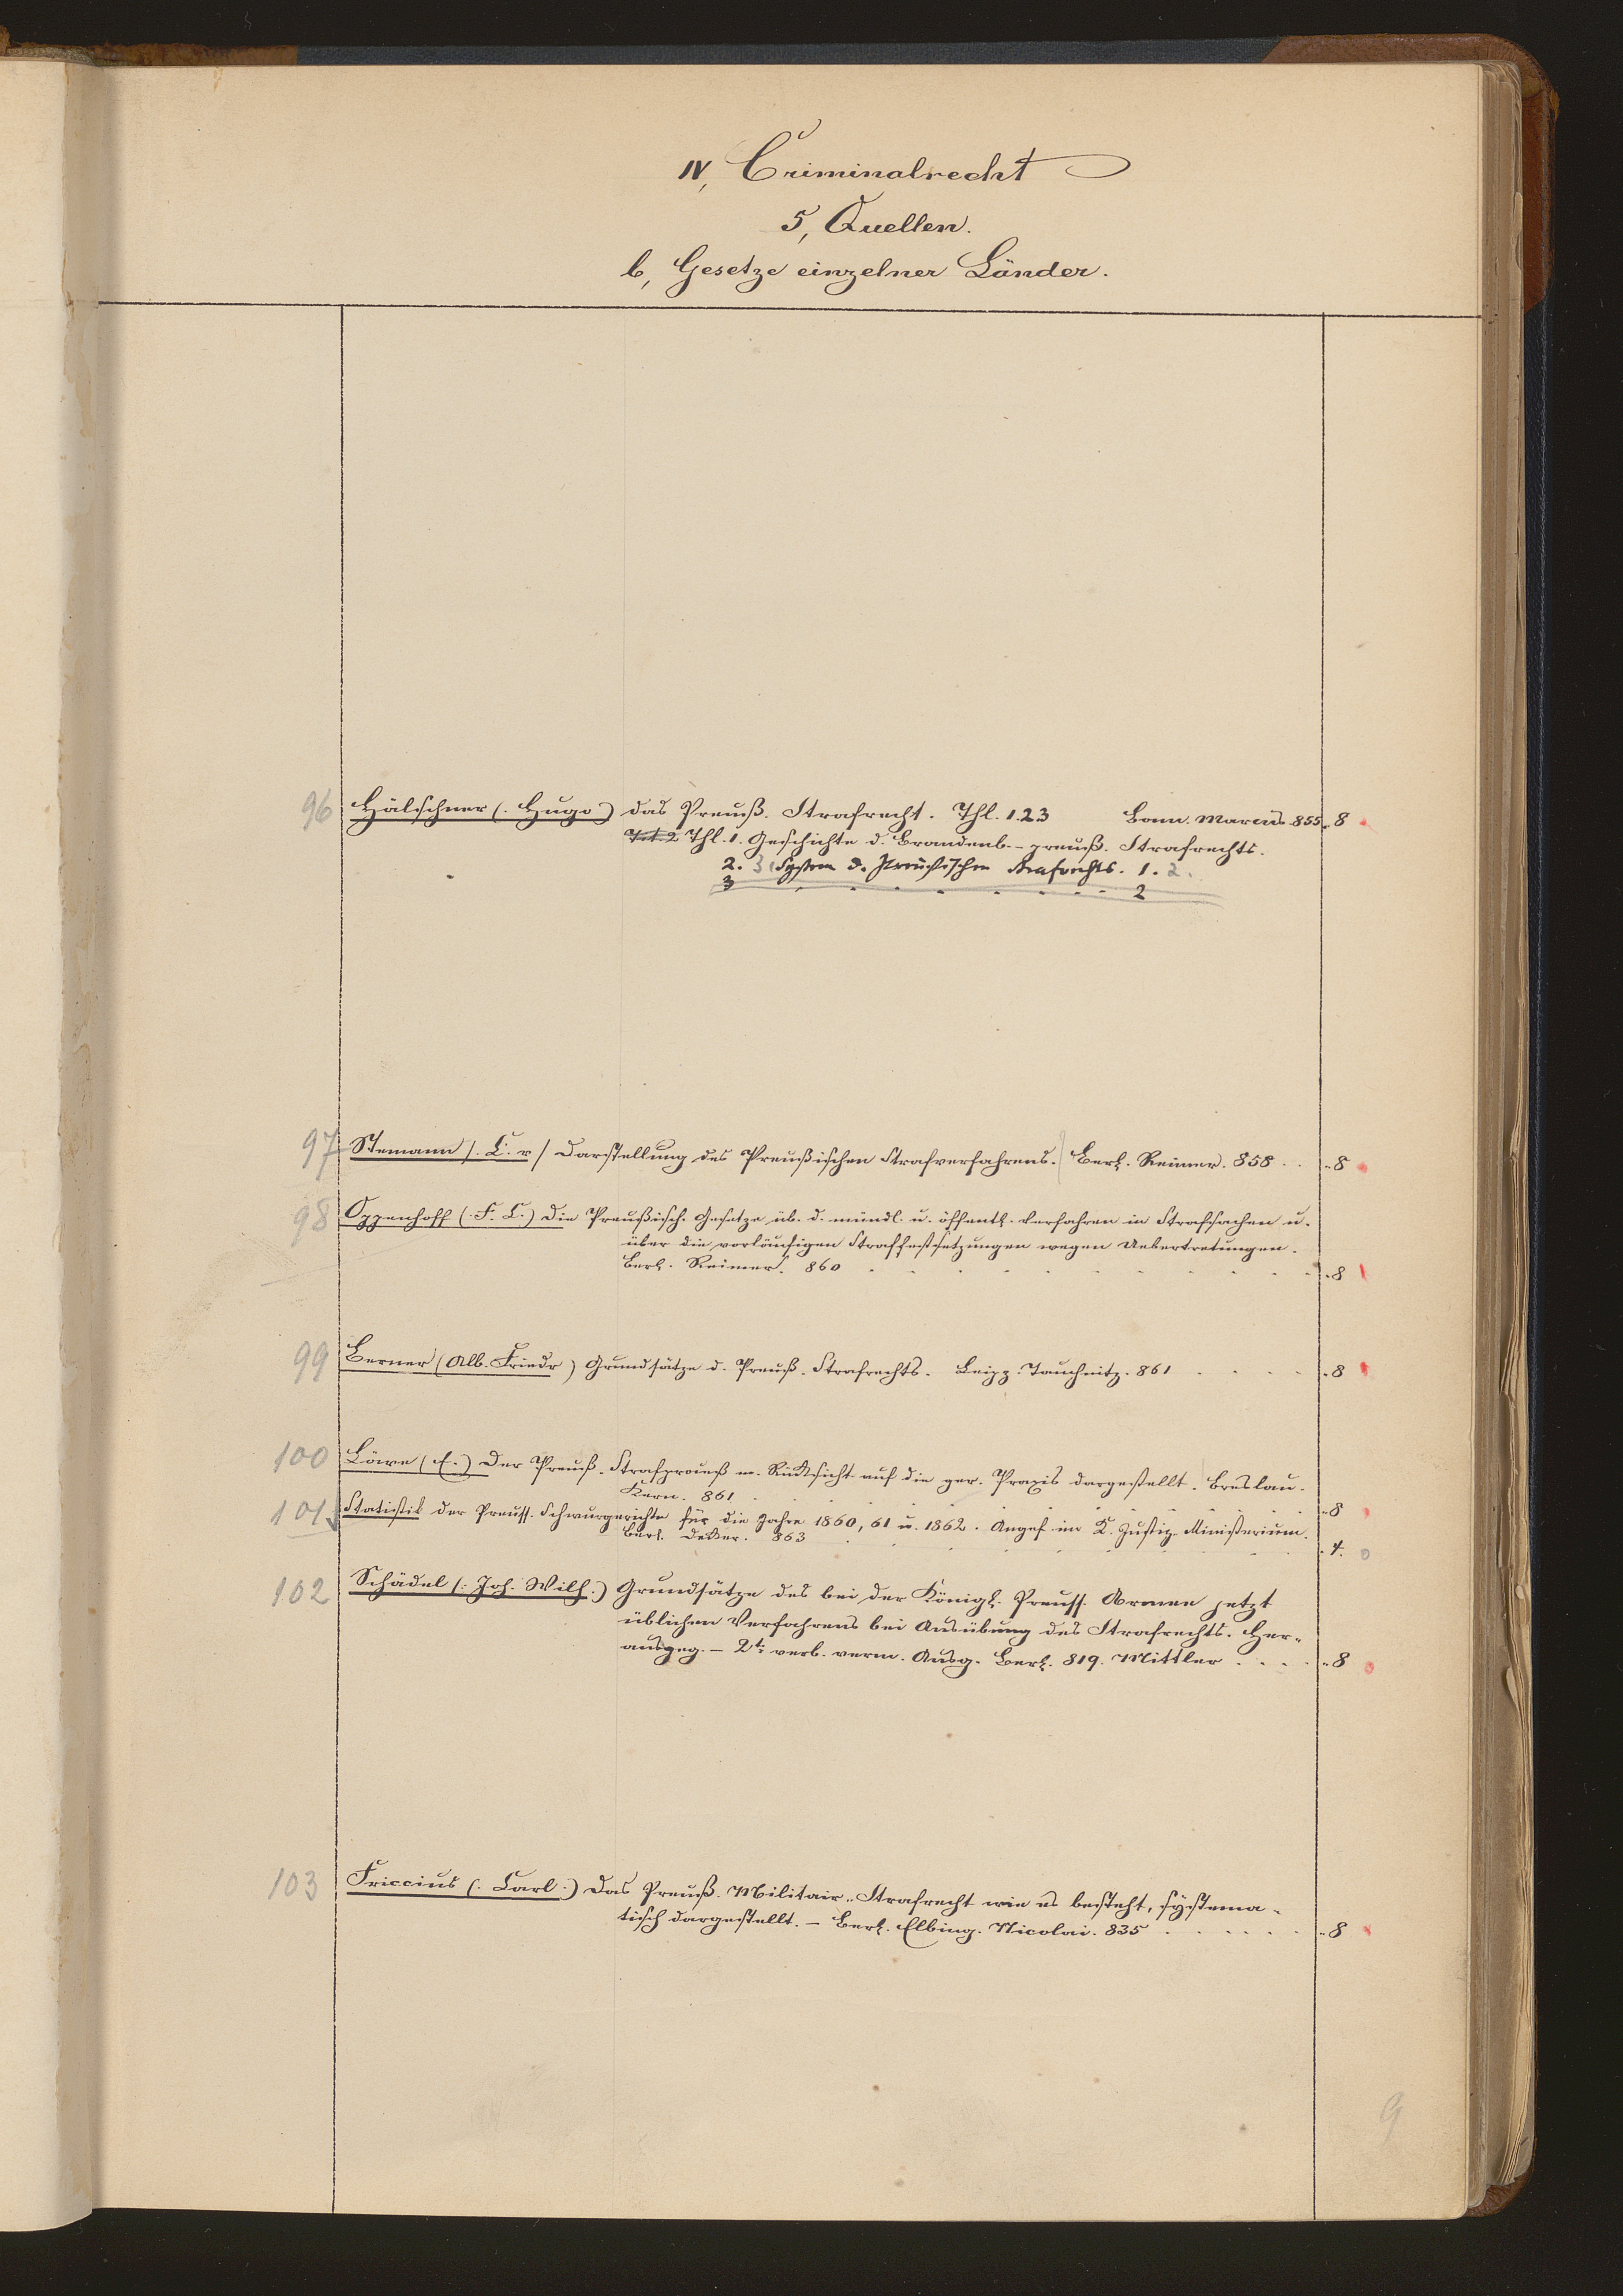 IV, Criminalrecht
5, Quellen.
b, Gesetze einzelner Länder.
96 Hälschner (. Hugo) das Preuß. Strafrecht. Thl. 1.2.3 Bonn. Marcus 855. 8
Thl. 1. Geschichte d. Brandenb.-preuß. Strafrechts.
2. 3 System d. Preußischen Strafrechts. 1. 2.
3 2
97 Stemann (. C. v) Darstellung des Preußischen Strafverfahrens. Berl. Reimer. 858 . . 8
98 Oppenhoff (. F. C.) Die Preußisch. Gesetze üb. d. mündl. u. öffentl. Verfahren in Strafsachen u.
über die vorläufigen Straffestsetzungen wegen Uebertretungen.
Berl. Reimer. 860 . . . 8
99 Berner (Alb. Friedr) Grundsätze d. Preuß. Strafrechts. Leipz. Tauchnitz. 861 . . . 8
100 Löwe (E.) Der Preuß. Strafprozeß m. Rücksicht auf die ger. Praxis dargestellt. Breslau.
Kern. 861 . . . 8
101 Statistik der Preuss. Schwurgerichte für die Jahre 1860, 61 u. 1862. Angef. im K. Justiz-Ministerium.
Berl. Decker. 863 . . . 4.
102 Schädel (: Joh. Wilh.) Grundsätze des bei der Königl. Preuss. Armee jetzt
üblichen Verfahrens bei Ausübung des Strafrechts. Her-
ausgeg. – 2te verb. verm. Ausg. Berl. 819. Mittler . . . 8
103 Friccius (. Carl.) Das Preuß. Militair-Strafrecht wie es besteht, systema-
tisch dargestellt. – Berl. Elbing. Nicolai. 835 . . . 8
9